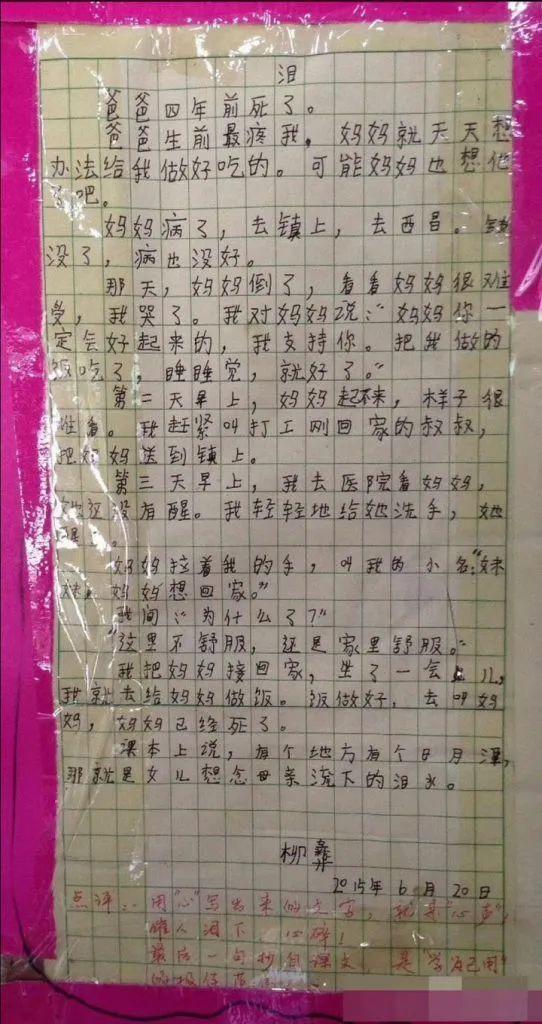 泪
爸爸四年前死了。
爸爸生前最疼我,妈妈就天天想
办法给我做好吃的。可能妈妈也想他
了吧。
妈妈病了,去镇上,去西昌。钱
没了,病也没好。
那天,妈妈倒了,看看妈妈很难
受,我哭了。我对妈妈说:“妈妈你一
定会好起来的,我支持你。把我做的
饭吃了,睡睡觉,就好了。”
第二天早上,妈妈起不来,样子很
难看。我赶紧叫打工刚回家的叔叔,
把妈妈送到镇上。
第三天早上,我去医院看妈妈,
她还没有醒。我轻轻地给她洗手,她
醒了。
妈妈拉着我的手,叫我的小名:“妹
妹,妈妈想回家。”
我问:“为什么了?”
“这里不舒服,还是家里舒服。”
我把妈妈接回家,坐了一会儿,
我就去给妈妈做饭。饭做好,去叫妈
妈,妈妈已经死了。
课本上说,有个地方有个日月潭,
那就是女儿想念母亲流下的泪水。
柳彝
2015年6月20日
点评:用“心”写出来的文字,就是“心声”,
催人泪下,心碎!
最后一句抄自课文,是“学为己用”
的极佳范